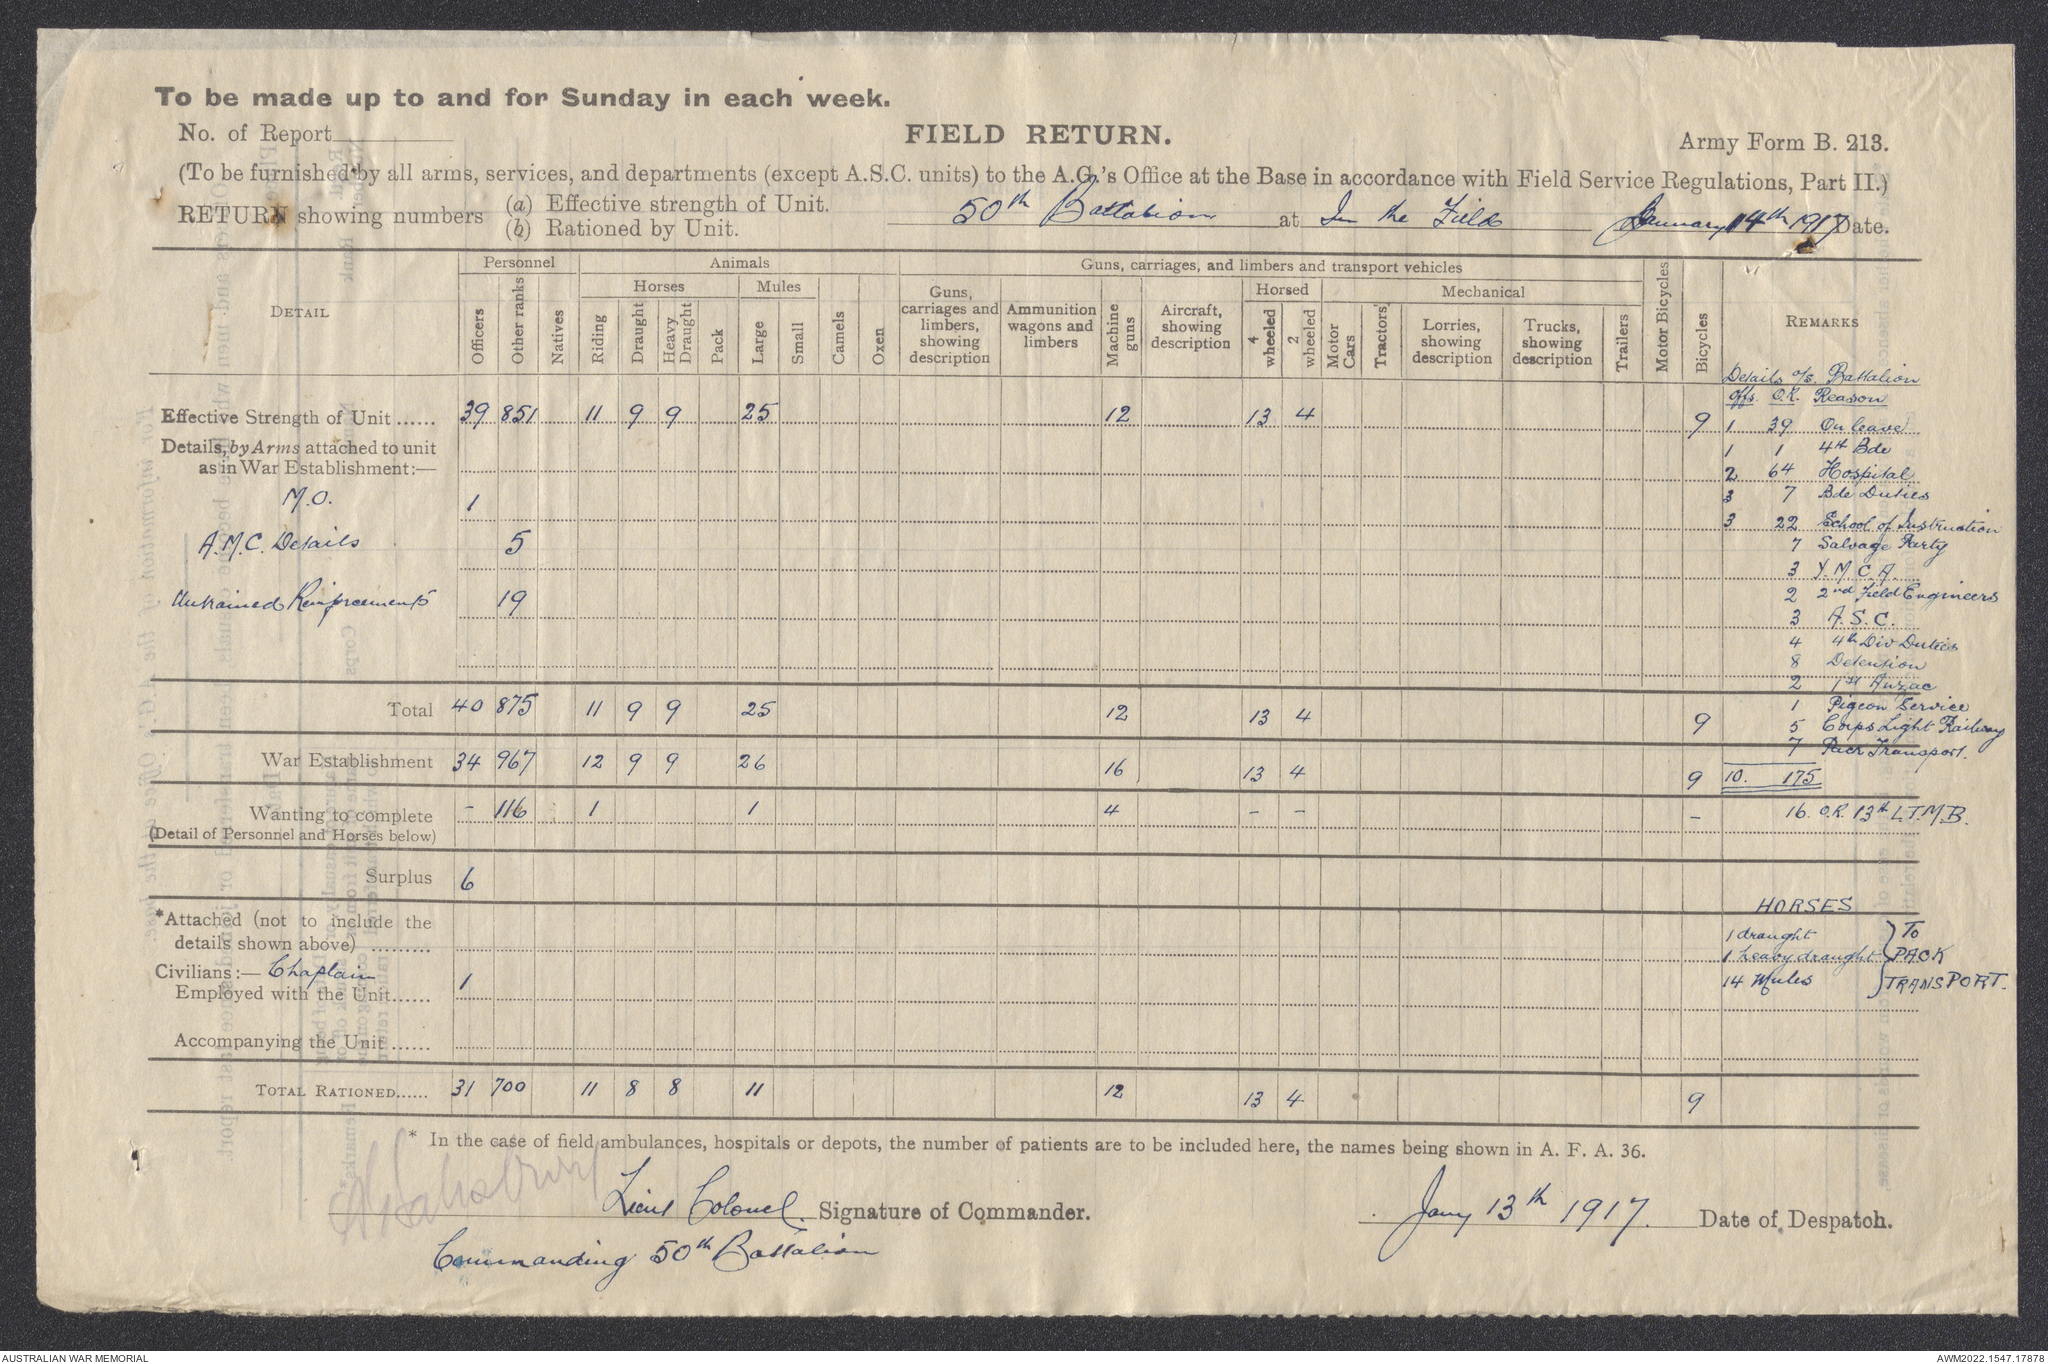 To be made up to and for Sunday in each week.
No. of Report
FIELD RETURN.
Army Form B. 213.
(To be furnished by all arms, services, and departments (except A.S.C. units) to the A.G.'s Office at the Base in accordance with Field Service Regulations, Part II.)
RETURN showing numbers (a) Effective strength of Unit.
(b) Rationed by Unit.
50th Battalion at In the Field January 14th 1917 Date.
DETAIL
Personnel
Animals
Guns, carriages, and limbers and transport vehicles
Horses
Mules
Horsed
Mechanical
Officers
Other ranks
Natives
Riding
Draught
Heavy Draught
Pack
Large
Small
Camels
Oxen
Guns, carriages and limbers, showing description
Ammunition wagons and limbers
Machine guns
Aircraft, showing description
4 wheeled
2 wheeled
Motor Cars
Tractors
Lorries, showing description
Trucks, showing description
Trailers
Motor Bicycles
Bicycles
REMARKS
Details o/s. Battalion
Offs. O.R. Reason
Effective Strength of Unit ...... 39 851 11 9 9 25 12 13 4 9
1 39 On leave
Details, by Arms attached to unit
as in War Establishment:—
1 1 4th Bde
2 64 Hospital
M.O. 1
3 7 Bde Duties
3 22 School of Instruction
A.M.C. Details 5
7 Salvage Party
3 Y.M.C.A.
Untrained Reinforcements 19
2 2nd Field Engineers
3 A.S.C.
4 4th Div Duties
8 Detention
2 1st Anzac
Total 40 875 11 9 9 25 12 13 4 9
1 Pigeon Service
5 Corps Light Railway
7 Pack Transport.
War Establishment 34 967 12 9 9 26 16 13 4 9
10. 175
Wanting to complete - 116 1 1 4 - - -
(Detail of Personnel and Horses below)
16. O.R. 13th L.T.M.B.
Surplus 6
HORSES
*Attached (not to include the
details shown above) .........
1 draught
1 heavy draught
14 Mules
TO
PACK
TRANSPORT.
Civilians:— Chaplain
Employed with the Unit...... 1
Accompanying the Unit ......
TOTAL RATIONED...... 31 700 11 8 8 11 12 13 4 9
* In the case of field ambulances, hospitals or depots, the number of patients are to be included here, the names being shown in A. F. A. 36.
Lieut Colonel. Signature of Commander.
Jany 13th 1917. Date of Despatch.
Commanding 50th Battalion
AUSTRALIAN WAR MEMORIAL
AWM2022.1547.17878